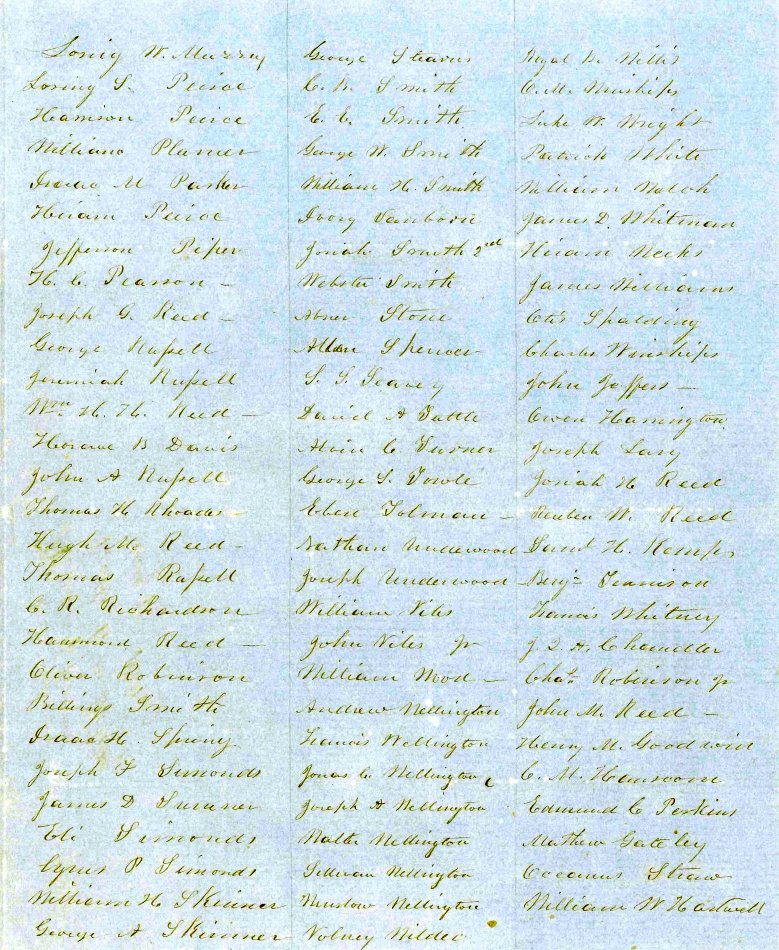 Loring W. Muzzey
Loring S. Peirce
Harrison Peirce
William Plumer
Isaac M Parker
Hiram Peirce
Jefferson Piper
H. C. Pearson –
Joseph G. Reed –
George Russell
Jeremiah Russell
Wm H. H. Reed –
Horace B Davis
John A Russell
Thomas H Rhoades
Hugh M. Reed –
Thomas Russell
C. R. Richardson
Hammond Reed –
Oliver Robinson
Billings Smith
Isaac H. Spring
Joseph F Simonds
James D Sumner
Eli Simonds
Cyrus P Simonds
William H Skinner
George A Skinner
George Stearns
C. B. Smith
E. E. Smith
George W. Smith
William H. Smith
Ivory Sanborn
Josiah Smith 2nd
Webster Smith
Abner Stone
Allen Spencer
S. S. Seavey
David A Tuttle
Alvin C Turner
George S. Towle
Eben Tolman –
Nathan Underwood
Joseph Underwood
William Viles
John Viles Jr
William Wood –
Andrew Wellington
Francis Wellington
Jonas C. Wellington
Joseph A Wellington
Walter Wellington
Sullivan Wellington
Winslow Wellington
Volney Wilder
Royal W. Willis
C. M. Winship
Luke W. Wright
Patrick White
William Welch
James D. Whitman
Hiram Weeks
James Williams
Otis Spalding
Charles Winship
John Jeffers –
Owen Harrington
Joseph Lary
Josiah H Reed
Reuben W. Reed
Saml H. Kemp
Benj. Tennison
Francis Whitney
J. Q. A. Chandler
Chas. Robinson Jr
John M. Reed –
Henry M. Goodwin
C. M.
Edmund C Perkins
Mathew Gateley
Oceanus Straw
William W Hartwell